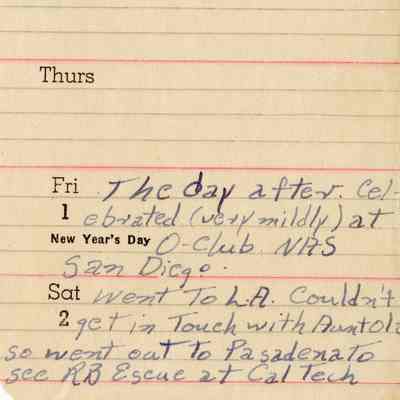 Thurs
Fri The day after. Cel-
1 ebrated (very mildly) at
New Year's Day O-Club. NAS
San Diego.
Sat Went To L.A. Couldn't
2 get in Touch with Aunt
so went out To Pasadena To
see RB Escue at Cal Tech